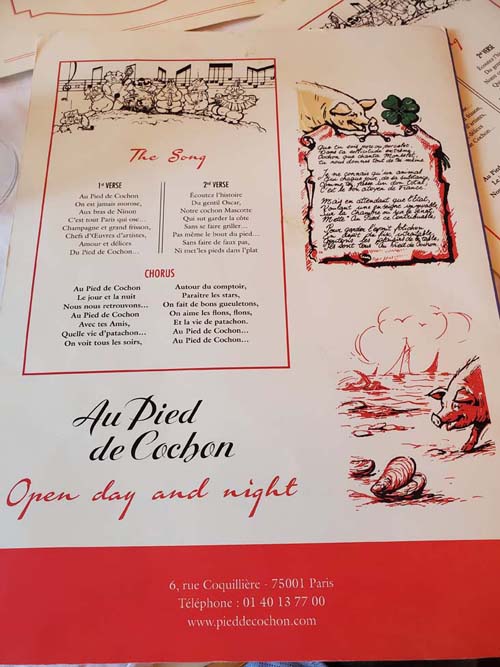 The Song
1er VERSE
Au Pied de Cochon
On est jamais morose,
Aux bras de Ninon
C'est tout Paris qui ose...
Champagne et grand frisson,
Chefs d'Œuvres d'artistes,
Amour et délices
Du Pied de Cochon...
2nd VERSE
Écoutez l'histoire
Du gentil Oscar,
Notre cochon Mascotte
Qui sut garder la côte
Sans se faire griller...
Pas même le bout du pied...
Sans faire de faux pas,
Ni met'les pieds dans l'plat
CHORUS
Au Pied de Cochon
Le jour et la nuit
Nous nous retrouvons...
Au Pied de Cochon
Avec tes Amis,
Quelle vie d'patachon...
On voit tous les soirs,
Autour du comptoir,
Paraitre les stars,
On fait de bons gueuletons,
On aime les flons, flons,
Et la vie de patachon.
Au Pied de Cochon...
Au Pied de Cochon...
Que tu sois porc ou porcelet
Cochon, que chanta Monselet,
Je ne connais qu'un animal
C'est le bon citoyen de France.
Mais en attendant que l'État,
Pour garder l'esprit folichon
Au Pied
de Cochon
Open day and night
6, rue Coquillière - 75001 Paris
Téléphone : 01 40 13 77 00
www.pieddecochon.com